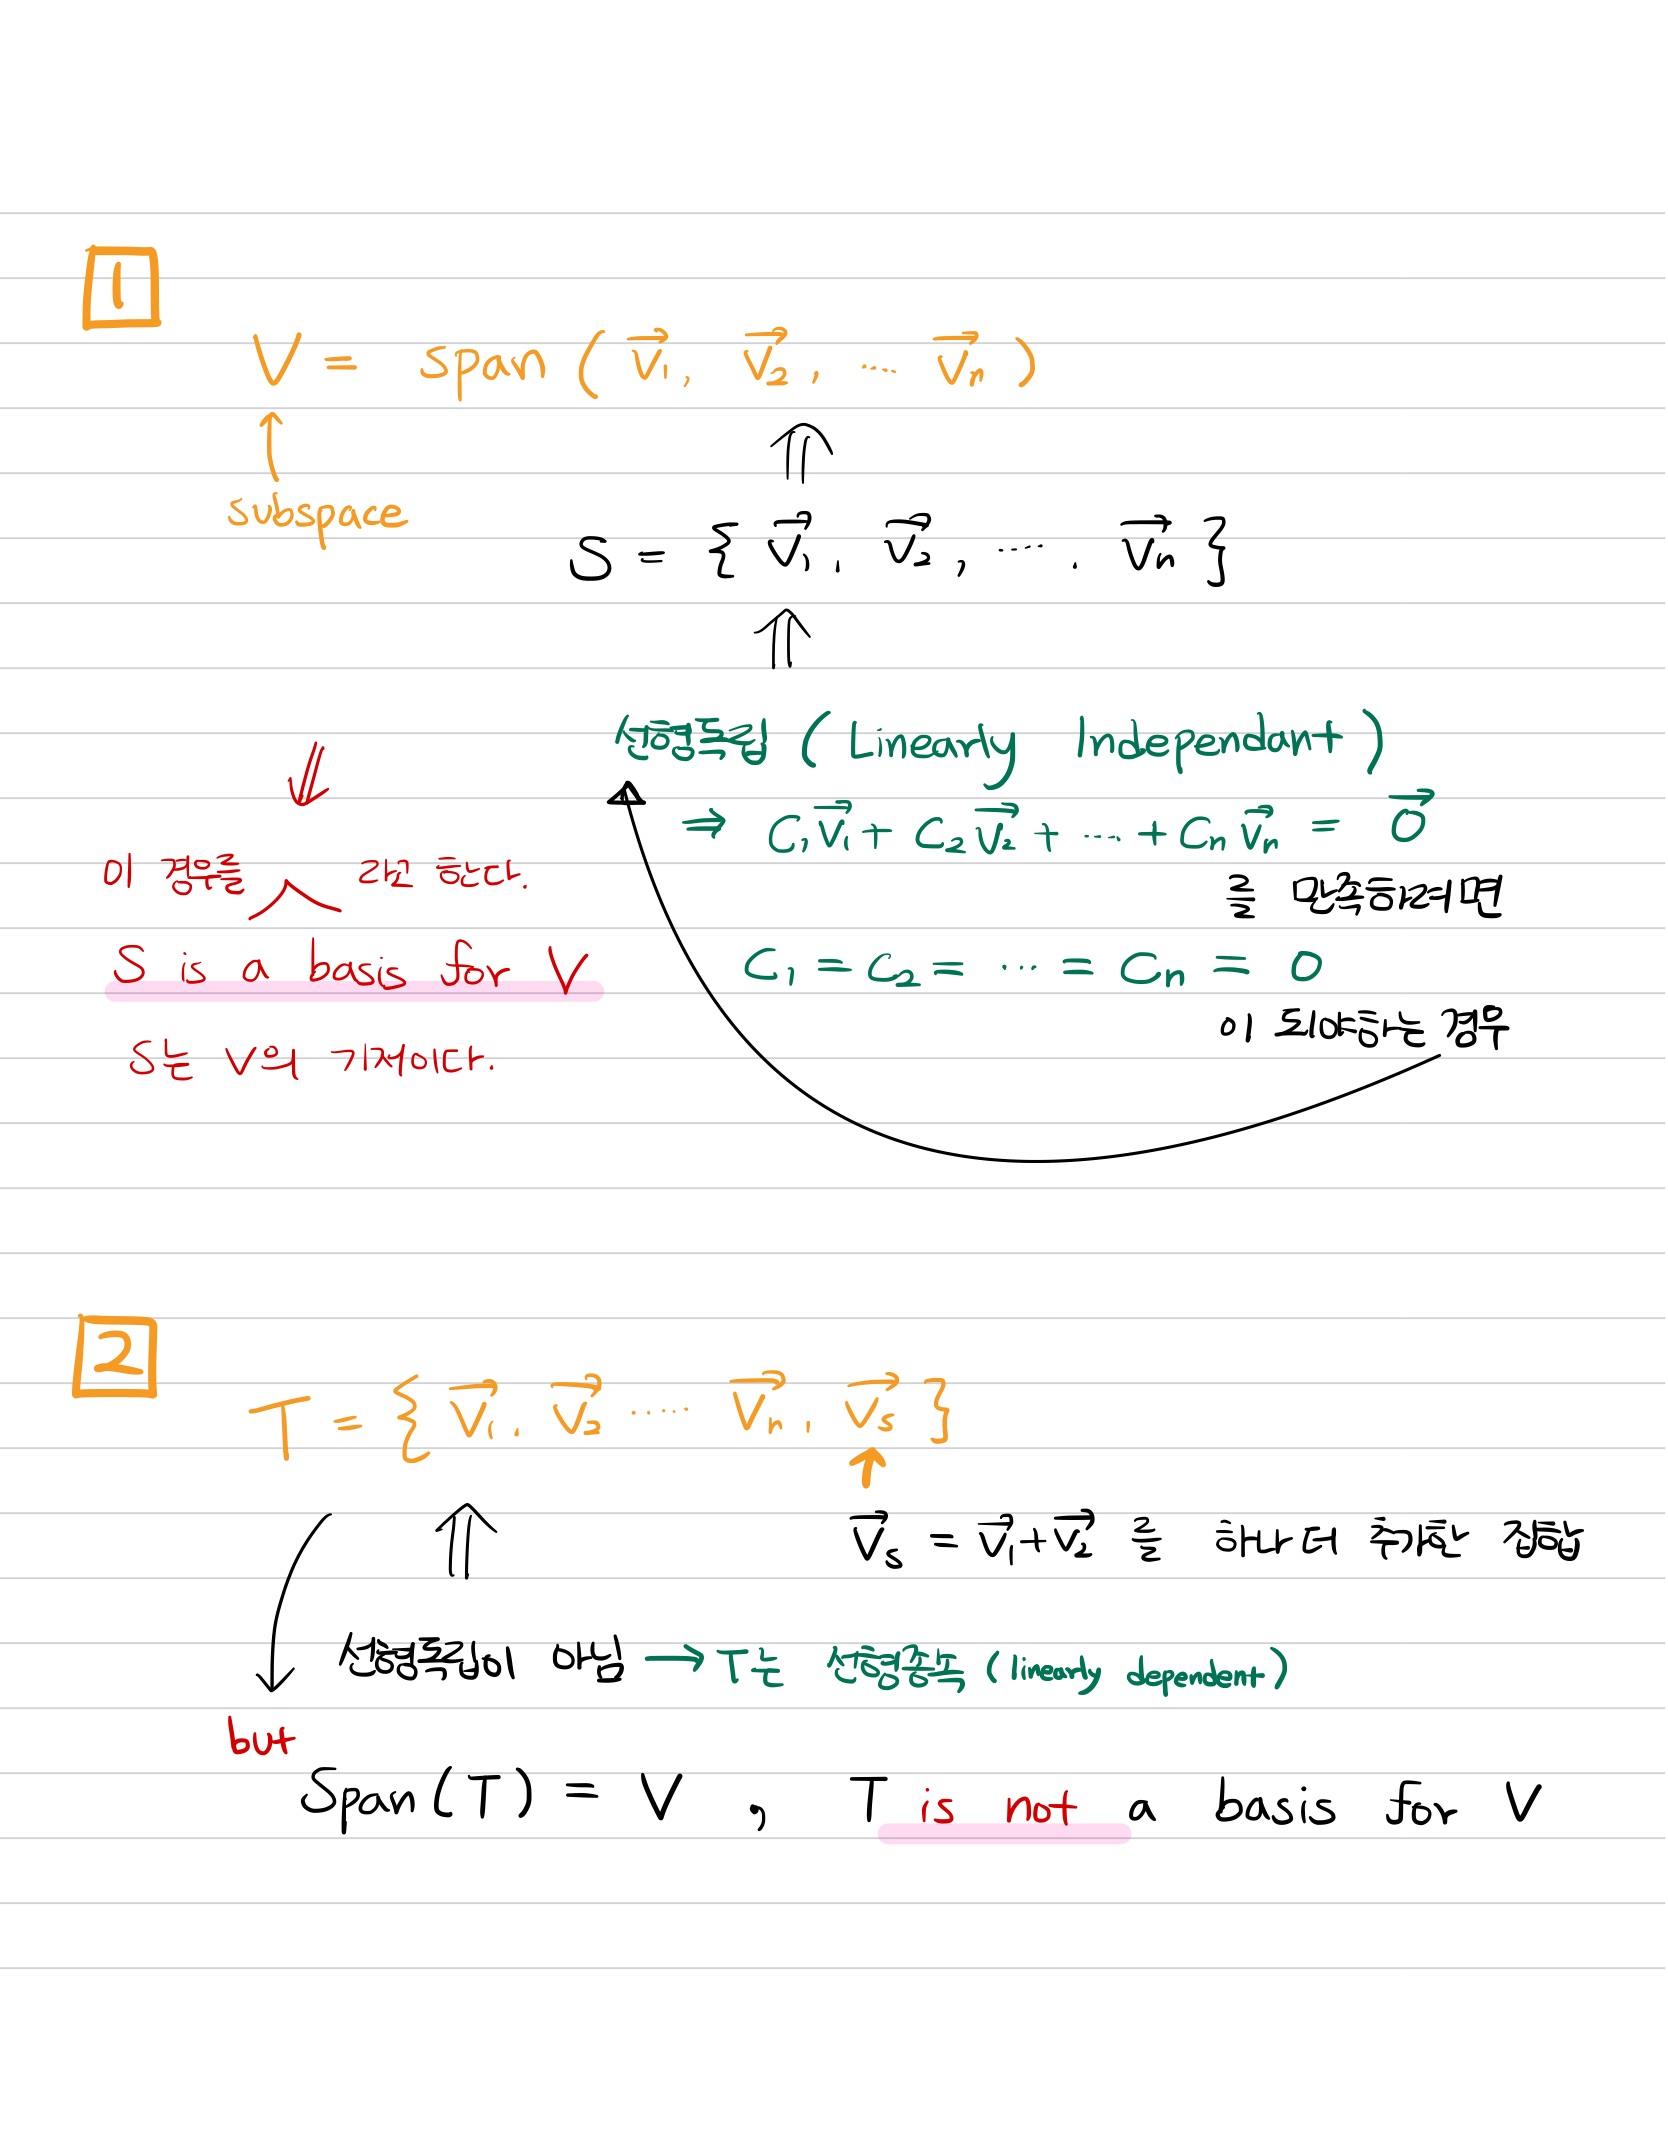 1
V = span ( v⃗₁, v⃗₂, ···· v⃗ₙ )
subspace
S = { v⃗₁, v⃗₂, ····, v⃗ₙ }
선형독립 ( Linearly Independant )
⇒ C₁v⃗₁ + C₂v⃗₂ + ···· + Cₙv⃗ₙ = 0⃗
를 만족하려면
C₁ = C₂ = ··· = Cₙ = 0
이 되야하는 경우
이 경우를 라고 한다.
S is a basis for V
S는 V의 기저이다.
2
T = { v⃗₁, v⃗₂ ····· v⃗ₙ, v⃗ₛ }
v⃗ₛ = v⃗₁+v⃗₂ 를 하나 더 추가한 집합
선형독립이 아님 → T는 선형종속 (linearly dependent)
but
Span(T) = V , T is not a basis for V